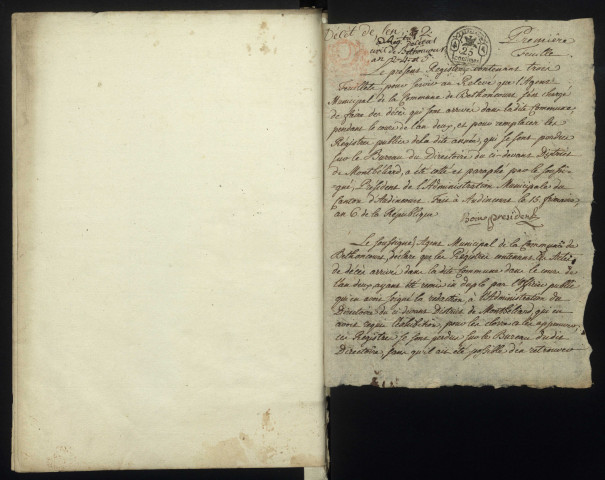 Décet de l'an 2
Première
Feuille
25
centimes
Le présent Registre contenant trois
Feuillets pour servir au Relevé que l'Agent
Municipal de la Commune de Bethoncourt fait chargé
de faire des décès qui sont arrivés dans ladite Commune
pendant le cours de l'an deux, et pour remplacer les
Registres publics de ladite année, qui se sont perdus
sur le Bureau du Directoire du ci-devant District
de Montbéliard, a été cotté et paraphé par le soussi-
gné, Président de l'Administration Municipale du
Canton d'Audincourt. Fait à Audincourt le 15. frimaire
an 6 de la République
président
Le soussigné, Agent Municipal de la Commune de
Bethoncourt, déclare que les Registres contenant les Actes
de décès arrivés dans ladite Commune dans le cours de
l'an deux, ayant été remis en duplo par l'Officier public
qui en avoit soigné la rédaction, à l'Administration du
Directoire du ci-devant District de Montbéliard, qui en
avoit requis l'exhibition pour les
ces Registres se sont perdus sur le Bureau dudit
Directoire, sans qu'il ait été possible d'en retrouver